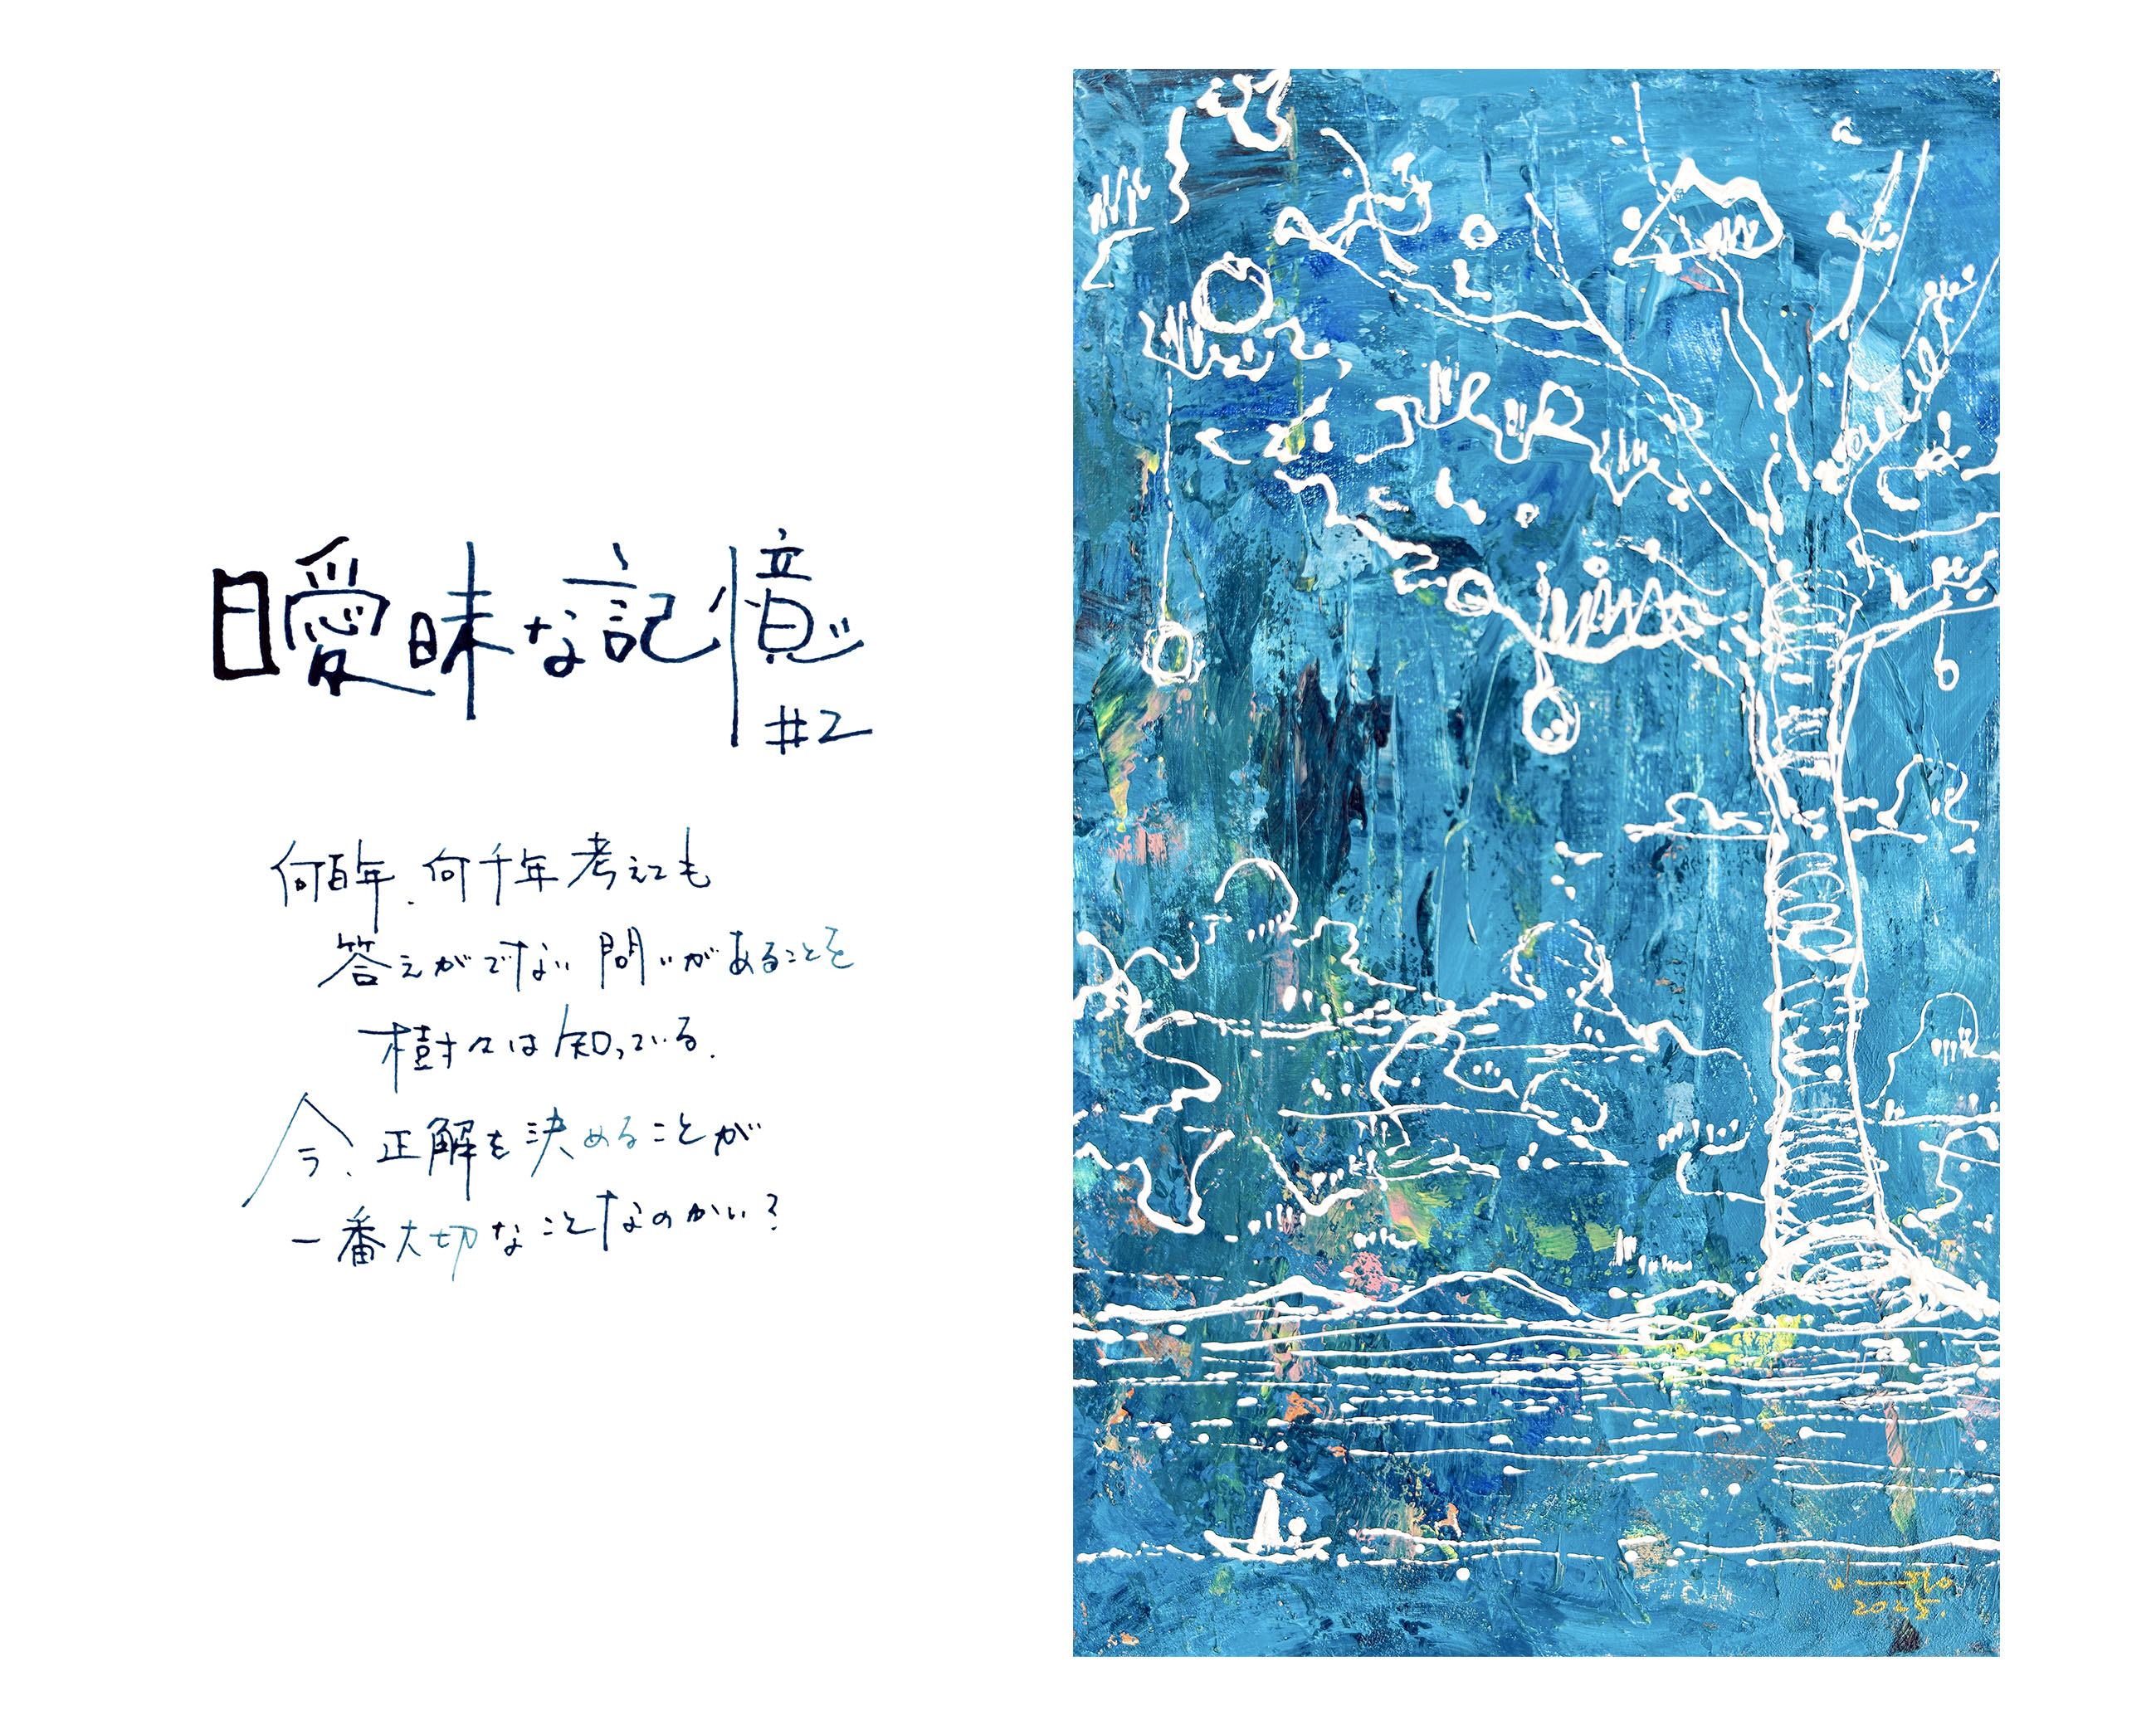 曖昧な記憶
#2
何百年、何千年考えても
答えがでない問いがあることを
樹々は知っている.
今、正解を決めることが
一番大切なことなのかい?
2025.